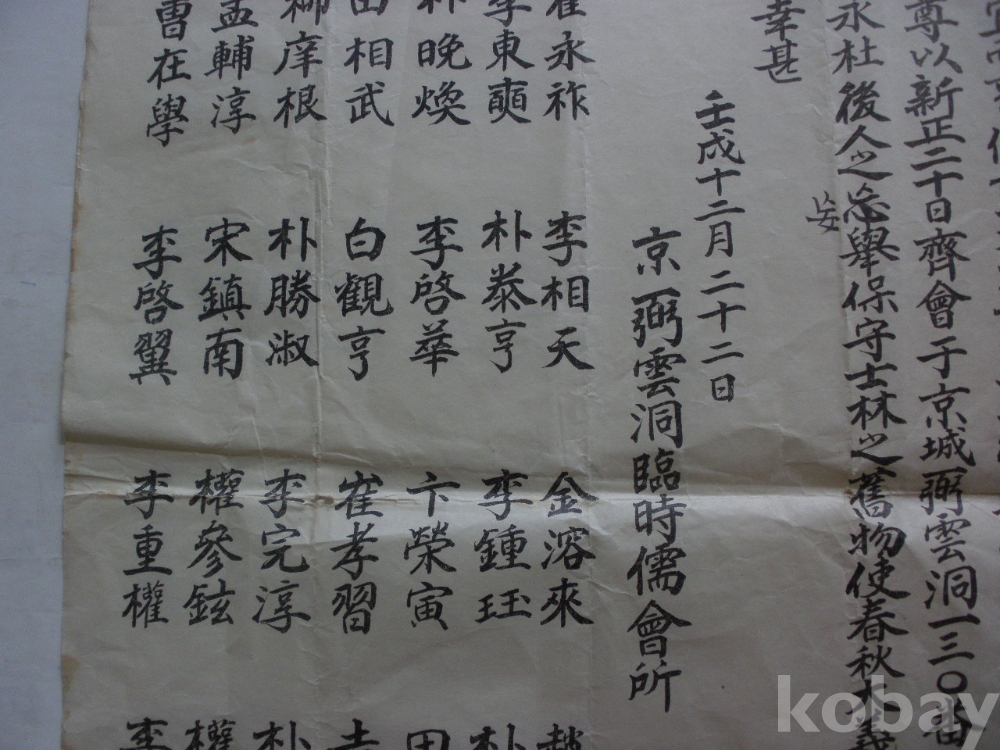 尊以新正二十日齊會于京城弼雲洞一三〇番
永杜後人之忘擧保守士林之舊物使春秋大義
妄
幸甚
壬戌十二月二十二日
京 弼雲洞臨時儒會所
崔永祚 李相天 金溶來 趙
李東奭 朴恭亨 李鍾玨 朴
朴晩煥 李啓華 卞榮寅 田
田相武 白觀亨 崔孝習
柳庠根 朴勝淑 李完淳 朴
孟輔淳 宋鎮南 權參鉉 權
曺在學 李啓翼 李重權 李
kobay